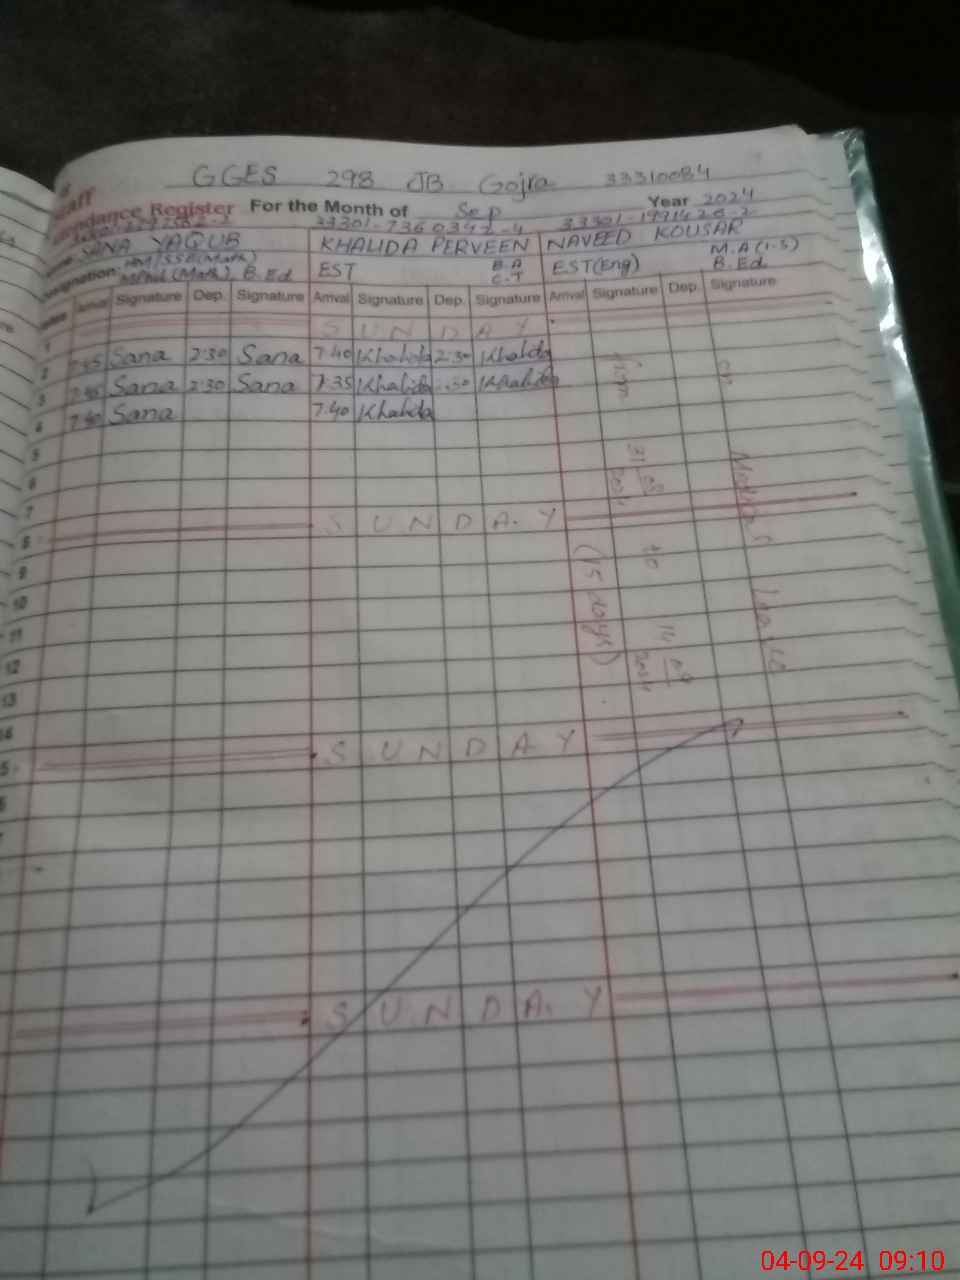 GGES 298 JB Gojra 33310084
Staff
Attendance Register For the Month of Sep Year 2024
SANA YAQUB KHALIDA PERVEEN NAVEED KOUSAR
HM/SSE(Math) B.A M.A(I-S)
Designation: (Math), B.Ed EST C.T EST(Eng) B.Ed
Arrival Signature Dep. Signature Arrival Signature Dep. Signature Arrival Signature Dep. Signature
1 SUNDAY
2 7:45 Sana 2:30 Sana 7:40 Khalida 2:30 Khalida
3 7:45 Sana 2:30 Sana 7:35 Khalida :30 Khalida
4 7:40 Sana 7:40 Khalida
5
6
7
8 SUNDAY
9
10
11
12
13
14
15 SUNDAY
SUNDAY
on Medical Leave
from 31 08 2024 to 14 09 2024
(15 days)
04-09-24 09:10